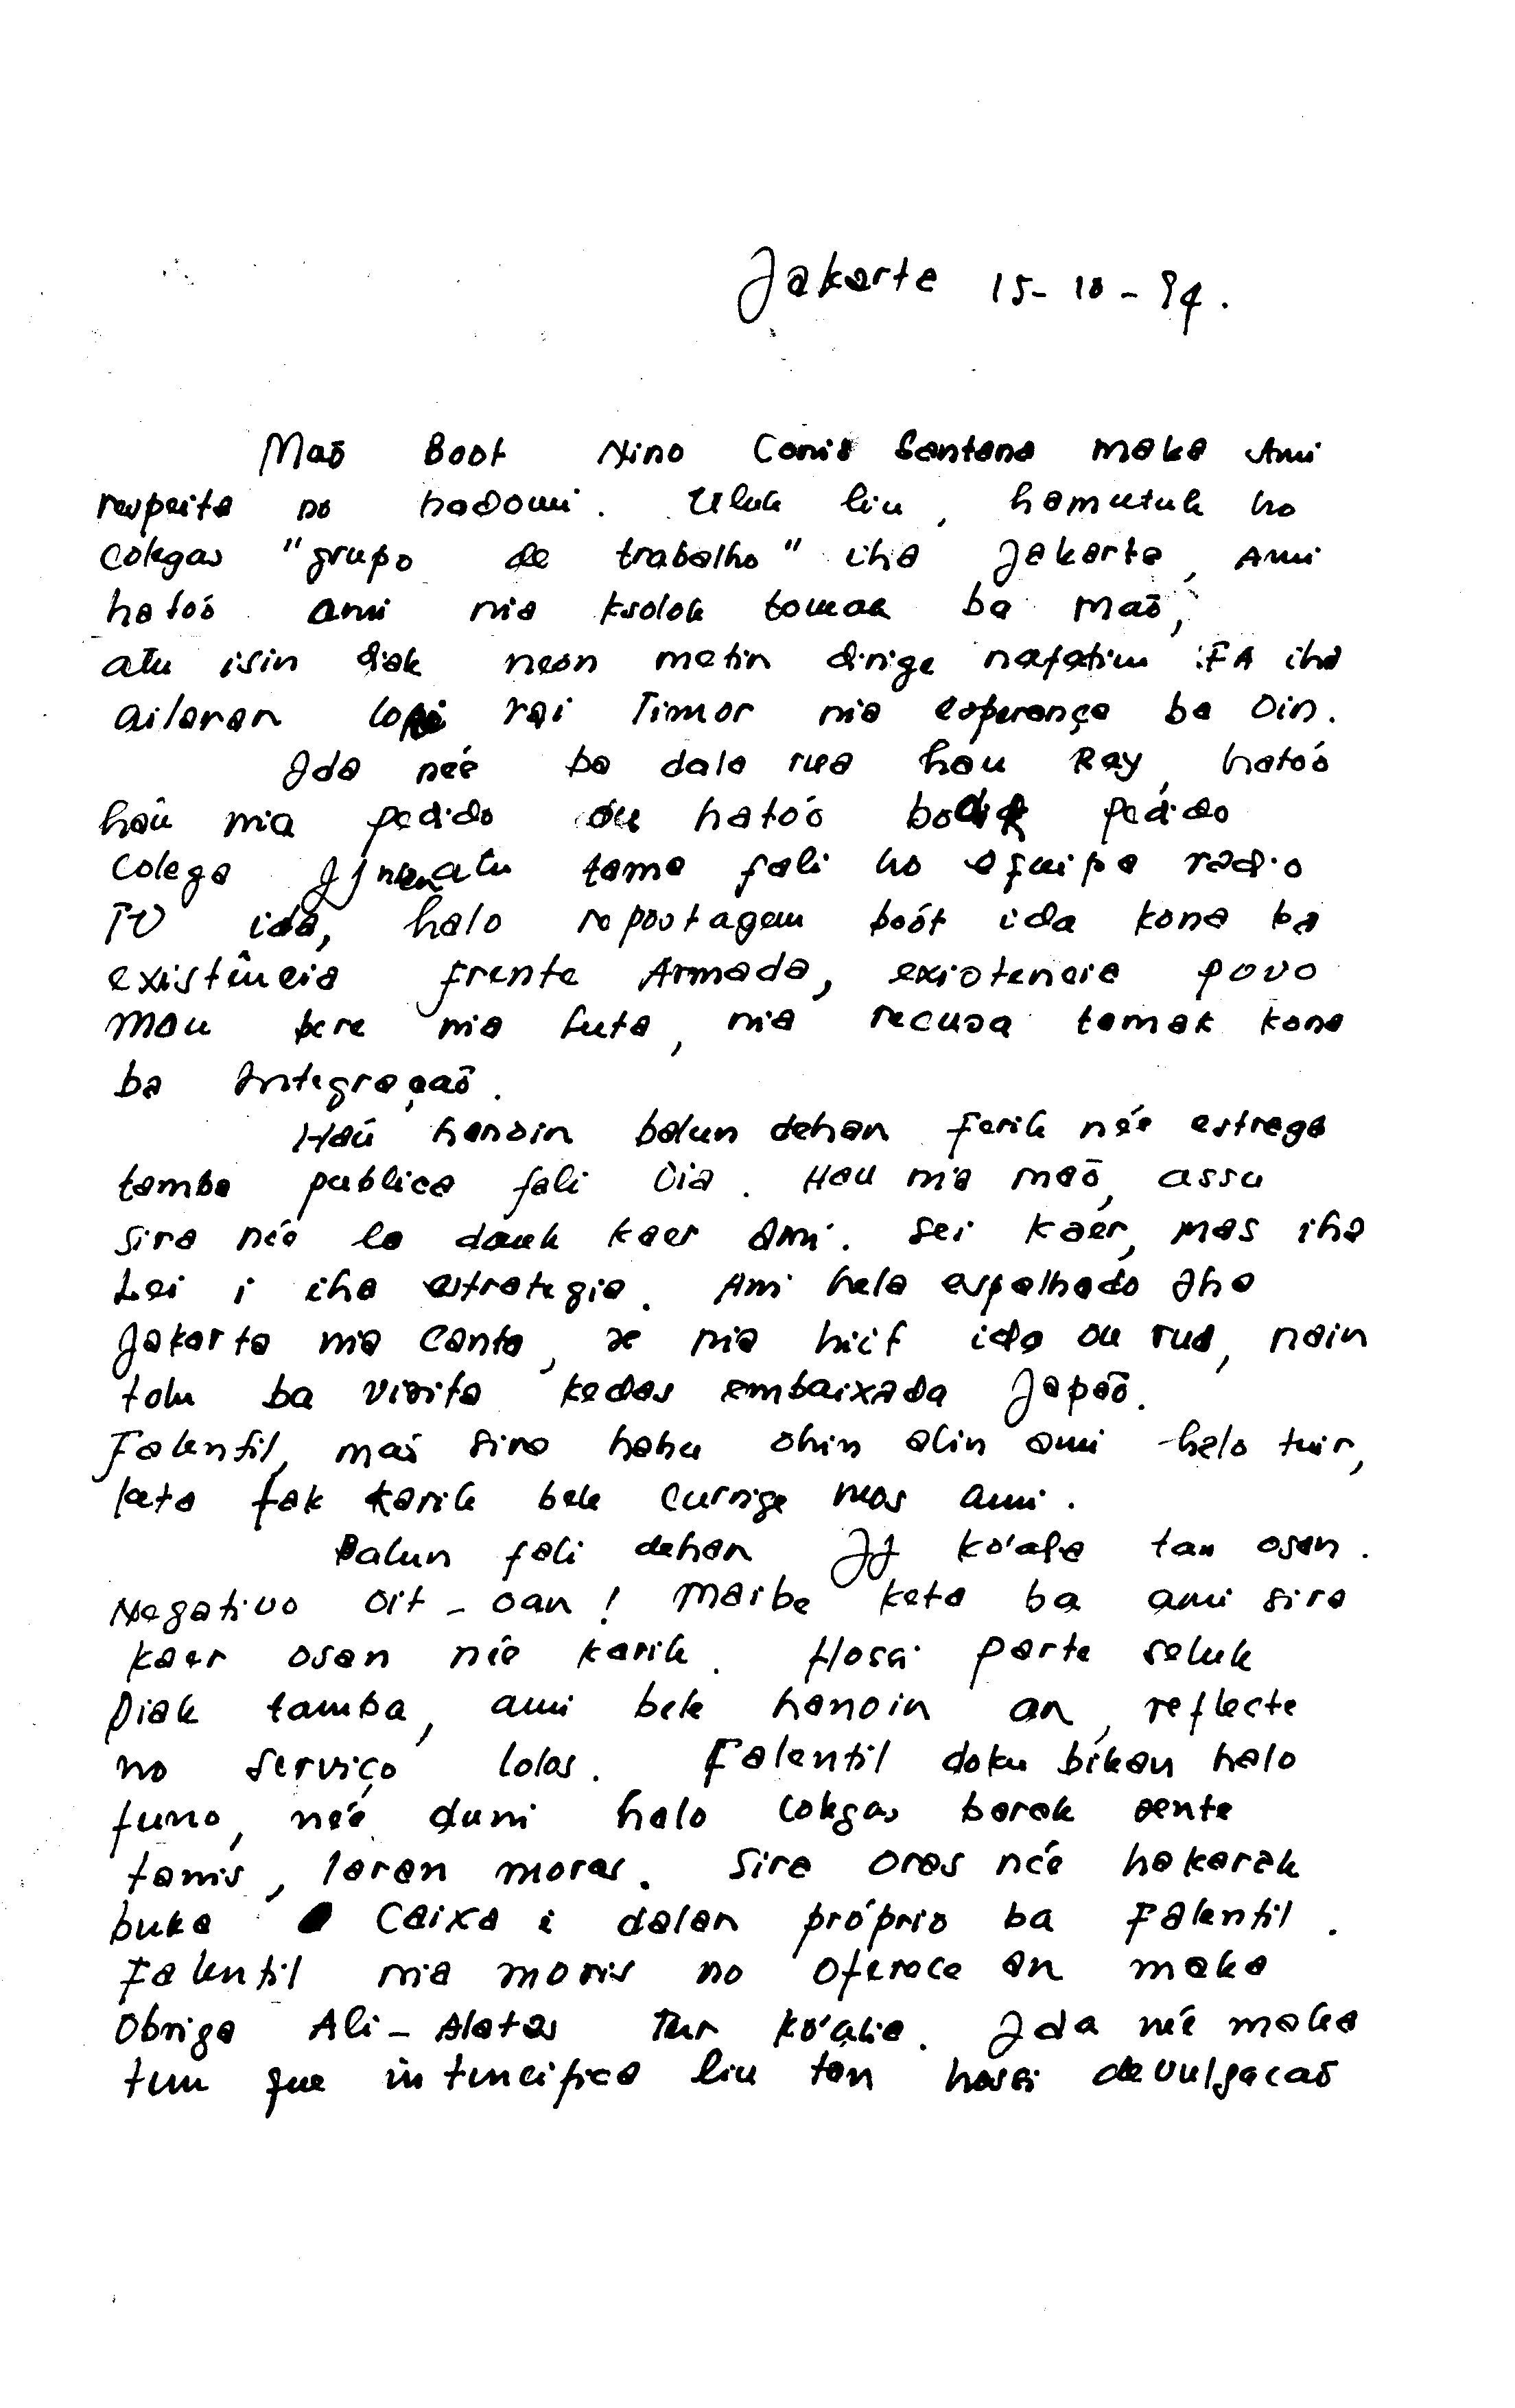 Jakarta 15-10-94.
Maõ Boot Nino Conis Santana maka Ami
respeita no hadomi. Uluk liu, hamutuk ho
colegas "grupo de trabalho" iha Jakarta, Ami
hatoó ami nia ksolok tomak ba Maõ,
atu isin diak neon metin dirige nafatin FA iha
ailaran rai Timor nia esperança ba Oin.
Ida neé ba dala rua haú Ray, hatoó
haú nia pedido ou hatoó pedido
Colega atu tama fali ho equipa radio
TV ida, halo reportagem boót ida kona ba
existência Frente Armada, existencia povo
Mau bere nia luta, nia recusa tomak kona
ba Integraçaõ.
Haú hanoin balun dehan Ferik neé estraga
tamba publica fali Oia. Hau nia maõ, assu
sira neé la dauk kaer ami. Sei kaer, mas iha
Lei i iha estrategia. Ami hela espalhado Iha
Jakarta nia Canto, se nia hicit ida ou rua, nain
tolu ba visita kedas embaixada Japaõ.
Falentil, maõ sira hahu ohin alin ami halo tuir,
keta fak karik bele Curnige mos ami.
Balun fali dehan JJ ko'alia tan osan.
Negativo Oit-oan! Maibe keta ba ami sira
kaer osan neé karik. Hosi parte seluk
Diak tamba, ami bele hanoin an, reflecte
no Serviço lolos. Falentil doku bikan halo
funo, neé duni halo Colegas barak sente
tanis, laran moras. Sira oras neé hakarak
buka Caixa i dalan próprio ba Falentil.
Falentil nia moris no oferece an maka
Obriga Ali-Alatas Tur ko'alia. Ida neé maka
tem que intencifica liu tan hosi devulgacaõ